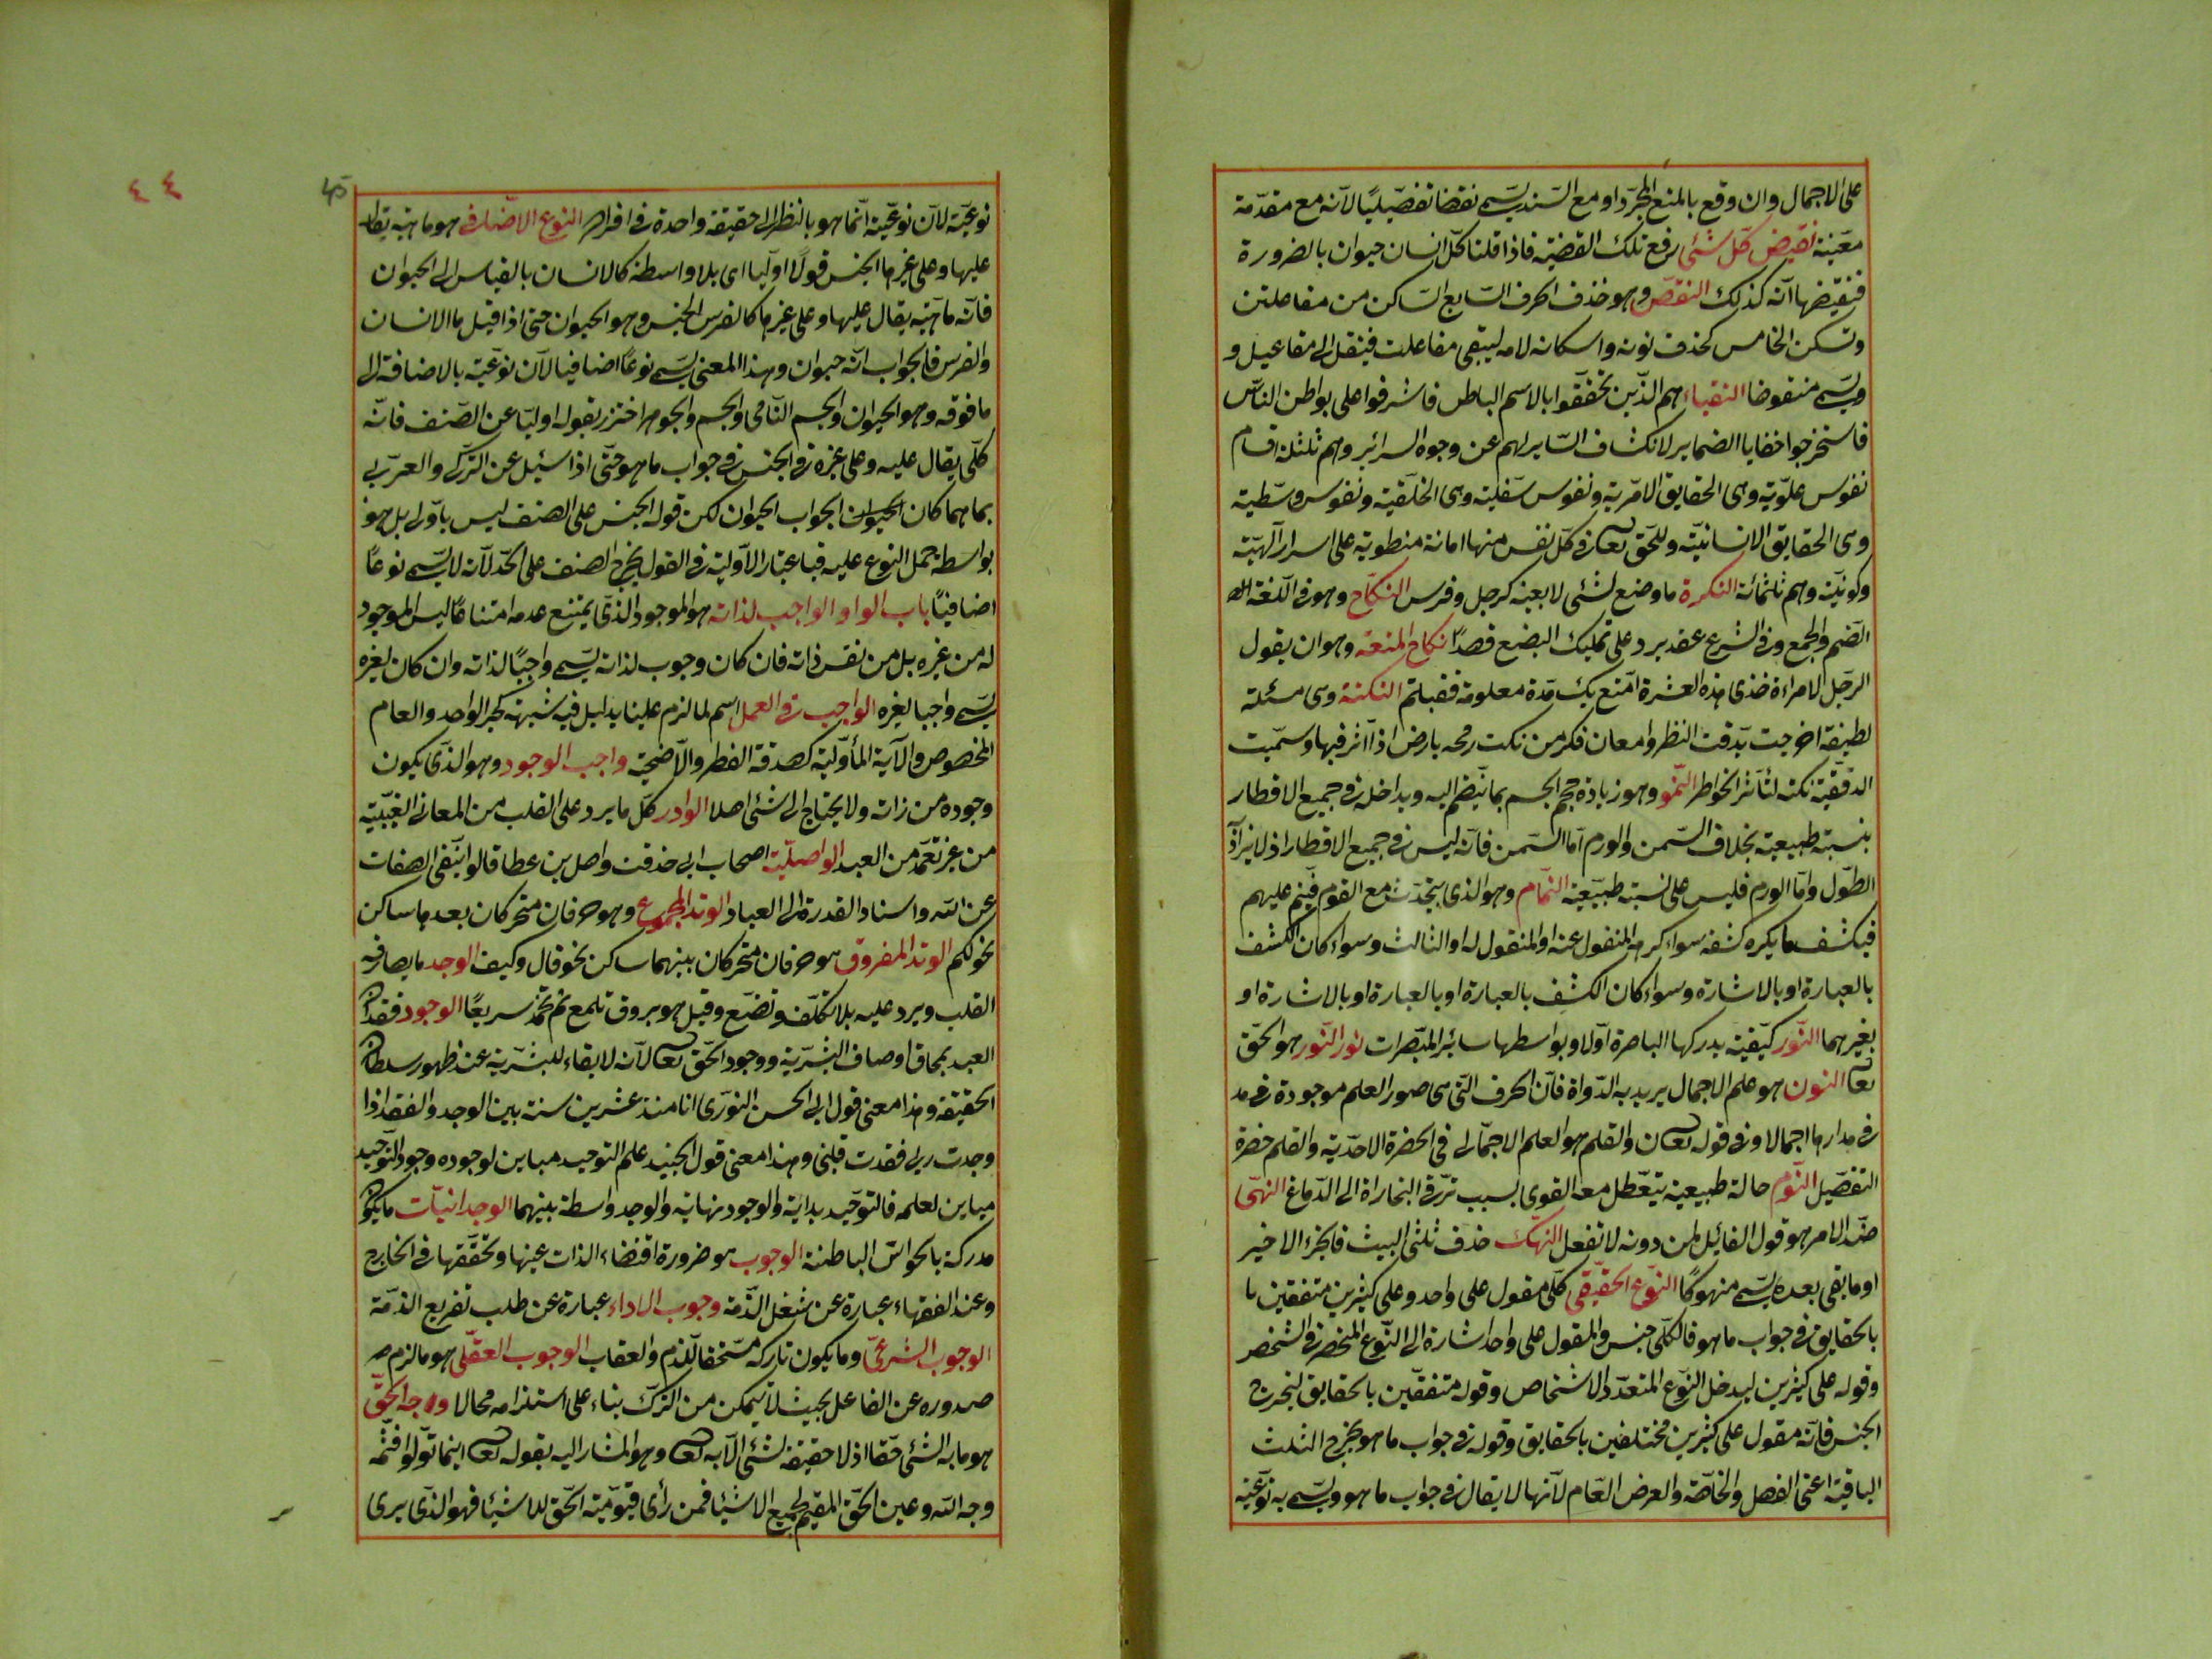 على الاجمال وان وقع بالمنع المجرد او مع السند يسمى نقضا تفصيليا لانه مع مقدمة
معينة نقيض كل شئى رفع تلك القضية فاذا قلنا كل انسان حيوان بالضرورة
فنقيضها انه كذلك النقص وهو حذف الحرف السابع الساكن من مفاعلتن
وتسكن الخامس كحذف نونه واسكان لامه ليبقى مفاعلت فينقل الى مفاعيل و
ويسمى منقوضا النقباء هم الذين تحققوا بالاسم الباطن فاشرفوا على بواطن الناس
فاستخرجوا خفايا الضماير لانكشاف الستاير لهم عن وجوه السرائر وهم ثلثة اقسام
نفوس علوية وهى الحقايق الامرية ونفوس سفلية وهى الخلقية ونفوس وسطية
وهى الحقايق الانسانية وللحق تعا فى كل نفس منها امانة منطوية على اسرار الهية
وكونية وهم ثلثمائة النكرة ما وضع لشئى لا بعينه كرجل وفرس النكاح وهو فى اللغة
الضم والجمع وفى الشرع عقد يرد على تمليك البضع قصدا نكاح المتعه وهو ان يقول
الرجل لامراءة خذى هذه العشرة اتمتع بك مدة معلومة فقبلته النكتة وهى مسئلة
لطيفة اخرجت بدقت النظر وامعان فكر من نكت رمحه بارض اذا اثر فيها وسميت
الدقيقة نكتة لتأثر الخواطر النمو وهو زيادة حجم الجسم بما ينضم اليه ويداخله فى جميع الاقطار
بنسبة طبيعية بخلاف السمن والورم اما السمن فانه ليس فى جميع الاقطار اذ لا يزاد
الطول واما الورم فليس على نسبة طبيعية النمام وهو الذى يتحدث مع القوم فينم عليهم
فيكشف ما يكره كشفه سواء كرهه المنقول عنه او المنقول له او الثالث وسواء كان الكشف
بالعبارة او بالاشارة وسواء كان الكشف بالعبارة او بالعبارة او بالاشارة او
بغيرهما النور كيفية يدركها الباصرة اولا وبواسطها سائر المبصرات نور النور هو الحق
تعا النون هو علم الاجمال يريد به الدواة فان الحرف التى هى صور العلم موجودة فى مد
فى مدارها اجمالا وفى قوله تعا ن والقلم هو العلم الاجمالى فى الحضرة الاحدية والقلم حضرة
التفصيل النوم حالة طبيعية يتعطل معه القوى بسبب ترقى البخاراة الى الدماغ النهى
ضد الامر هو قول القائل لمن دونه لا تفعل النهك حذف ثلثى البيت فالجزء الاخير
او ما بقى بعده يسمى منهوكا النوع الحقيقى كلى مقول على واحد وعلى كثيرين متفقين با
بالحقايق فى جواب ما هو فالكلى جنس والمقول على واحد اشارة الى النوع المنحصر فى الشخص
وقوله على كثيرين ليدخل النوع المتعدد الاشخاص وقوله متفقين بالحقايق ليخرج
الجنس فانه مقول على كثيرين مختلفين بالحقايق وقوله فى جواب ما هو يخرج الثلث
الباقية اعنى الفصل والخاصة والعرض العام لانها لا يقال فى جواب ما هو ويسمى به نوعية
٤٤
45
نوعية لان نوعيته انما هو بالنظر الى حقيقة واحدة فى افراده النوع الاضافى هو ماهية يقال
عليها وعلى غيرها الجنس قولا اوليا اى بلا واسطة كالانسان بالقياس الى الحيوان
فانه ماهية يقال عليها وعلى غيرها كالفرس الجنس وهو الحيوان حتى اذا قيل ما الانسان
والفرس فالجواب انه حيوان وهذا المعنى يسمى نوعا اضافيا لان نوعيته بالاضافة الى
ما فوقه وهو الحيوان والجسم النامى والجسم والجوهر احترز بقوله اوليا عن الصنف فانه
كلى يقال عليه وعلى غيره فى الجنس فى جواب ما هو حتى اذا سئيل عن التركى والعربى
بما هما كان الحيوان الجواب الحيوان لكن قول الجنس على الصنف ليس باولى بل هو
بواسطة حمل النوع عليه فباعتبار الاولية فى القول يخرج الصنف على الحد لانه لا يسمى نوعا
اضافيا باب الواو الواجب لذاته هو الموجود الذى يمتنع عدمه امتناعا ليس الموجود
له من غيره بل من نفس ذاته فان كان وجوب لذاته يسمى واجبا لذاته وان كان لغيره
يسمى واجبا لغيره الواجب فى العمل اسم لما لزم علينا بدليل فيه شبهة كخبر الواحد والعام
المخصوص والآية المأولية كصدقة الفطر والاضحية واجب الوجود وهو الذى يكون
وجوده من ذاته ولا يحتاج الى شئى اصلا الوادر كل ما يرد على القلب من المعانى الغيبية
من غير تعمد من العبد الواصلية اصحاب ابى حذفت واصل بن عطا قالوا بنفى الصفات
عن الله واسناد القدرة الى العباد الوتد المجموع وهو حرفان متحركان بعدهما ساكن
نحو لكم الوتد المفروق هو حرفان متحركان بينهما ساكن نحو قال وكيف الوجد ما يصادف
القلب ويرد عليه بلا تكلف وتصنع وقيل هو بروق تلمع ثم تخمد سريعا الوجود فقدان
العبد بمحاق اوصاف البشرية ووجود الحق تعا لانه لا بقاء للبشرية عند ظهور سلطان
الحقيقة وهذا معنى قول ابى الحسن النورى انا منذ عشرين سنة بين الوجد والفقد اذا
وجدت ربى فقدت قلبى وهذا معنى قول الجنيد علم التوحيد مباين لوجوده ووجود التوحيد
مباين لعلمه فالتوحيد بداية والوجود نهاية والوجد واسطة بينهما الوجدانيات ما يكون
مدركة بالحواس الباطنة الوجوب هو ضرورة اقتضاء الذات عينها وتحققها فى الخارج
وعند الفقهاء عبارة عن شغل الذمة وجوب الاداء عبارة عن طلب تفريغ الذمة
الوجوب الشرعى وما يكون تاركه مستحقا للذم والعقاب الوجوب العقلى هو ما لزم
صدوره عن الفاعل بحيث لا يتمكن من الترك بناء على استلزامه محالا وجه الحق
هو ما به الشئى حقا اذ لا حقيقة لشئى الا به تعا وهو المشار اليه بقوله تعا اينما تولوا فثمه
وجه الله وعين الحق المقيم لجميع الاشيئا فمن رأى قيومية الحق للاشيئا فهو الذى يرى